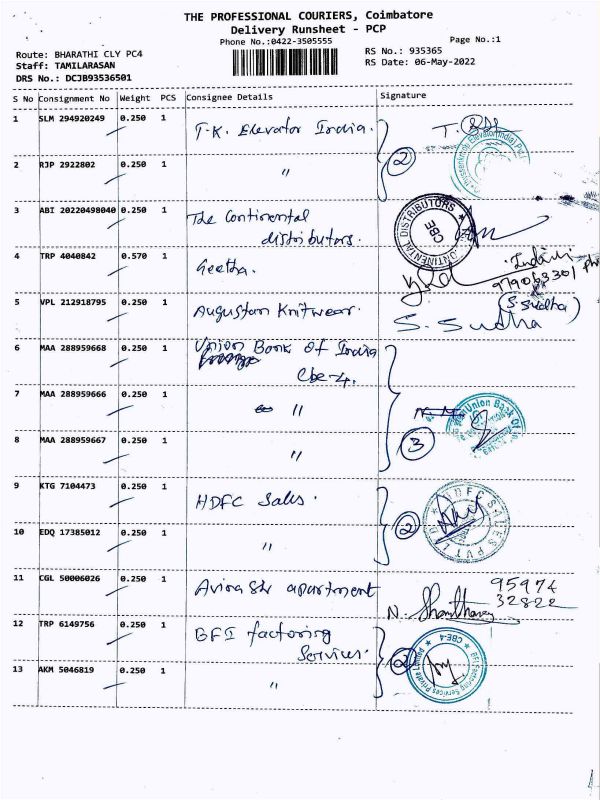 THE PROFESSIONAL COURIERS, Coimbatore
Delivery Runsheet - PCP
Phone No.:0422-3505555
Page No.:1
Route: BHARATHI CLY PC4
RS No.: 935365
Staff: TAMILARASAN
RS Date: 06-May-2022
DRS No.: DCJB93536501
S No Consignment No Weight PCS Consignee Details Signature
1 SLM 294920249 0.250 1 T.K. Elevator India.
2 RJP 2922802 0.250 1 "
2
3 ABI 20220498040 0.250 1 The Continental
distributors.
CONTINENTAL DISTRIBUTORS CBE
4 TRP 4040842 0.570 1 Geetha.
979063301 Ph
5 VPL 212918795 0.250 1 Augustan Knitwear.
(S. Sudha)
S. Sudha
6 MAA 288959668 0.250 1 Union Bank of India
Cbe-4.
7 MAA 288959666 0.250 1 "
Union Bank of
8 MAA 288959667 0.250 1 "
3
9 KTG 7104473 0.250 1 HDFC Sales.
HDFC SALES PVT L
10 EDQ 17385012 0.250 1 "
2
11 CGL 50006026 0.250 1 apartment
95974
32822
N.
12 TRP 6149756 0.250 1 BFI factoring
Services.
2
CBE-4
13 AKM 5046819 0.250 1 "